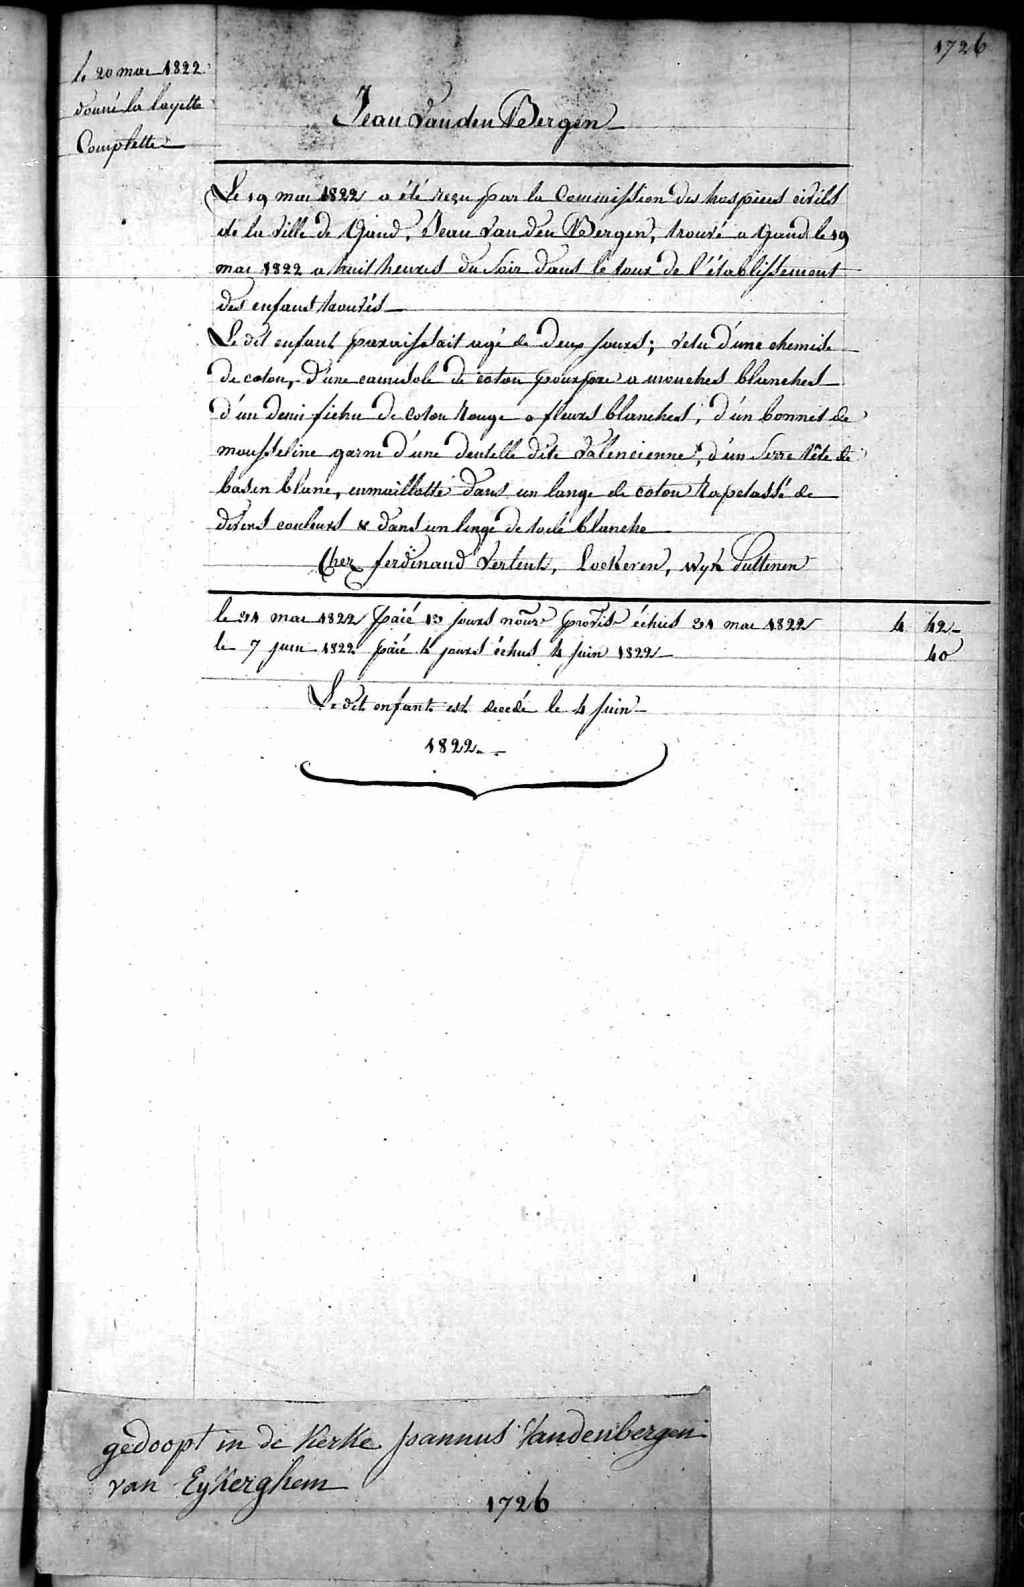 1726
le 20 mai 1822
donné la layette
Complette
Jean Van den Bergen
Le 19 mai 1822 a été reçu par la Commission des hospices civils
de la ville de Gand, Jean Van den Bergen, trouvé a Gand le 19
mai 1822 a huit heures du soir dans le tour de l'établissement
des enfans trouvés
Le dit enfant paraissait agé de deux jours; vetu d'une chemise
de coton, d'une camisole de coton pourpre a mouches blanches
d'un demi fichu de coton rouge a fleurs blanches, d'un bonnet de
mousseline garni d'une dentelle dite Valencienne, d'un serre tête de
basin blanc, enmaillotté dans un lange de coton rapetassé de
divers couleurs & dans un linge de toile blanche
Chez ferdinand Vertent, Lokeren, Wyk
le 31 mai 1822 paié 13 jours nourre provise échus 31 mai 1822 4 42
le 7 juin 1822 paié 4 jours échus 4 juin 1822 40
Le dit enfant est decedé le 4 juin
1822
gedoopt in de Kerke joannus Vandenbergen
van Eykerghem
1726